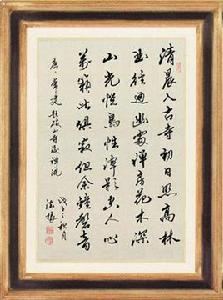 清晨入古寺初日照高林
曲徑通幽處禪房花木深
山光悦鳥性潭影空人心
萬籟此俱寂但餘鐘磬音
唐常建題破山寺後禪院
秋月